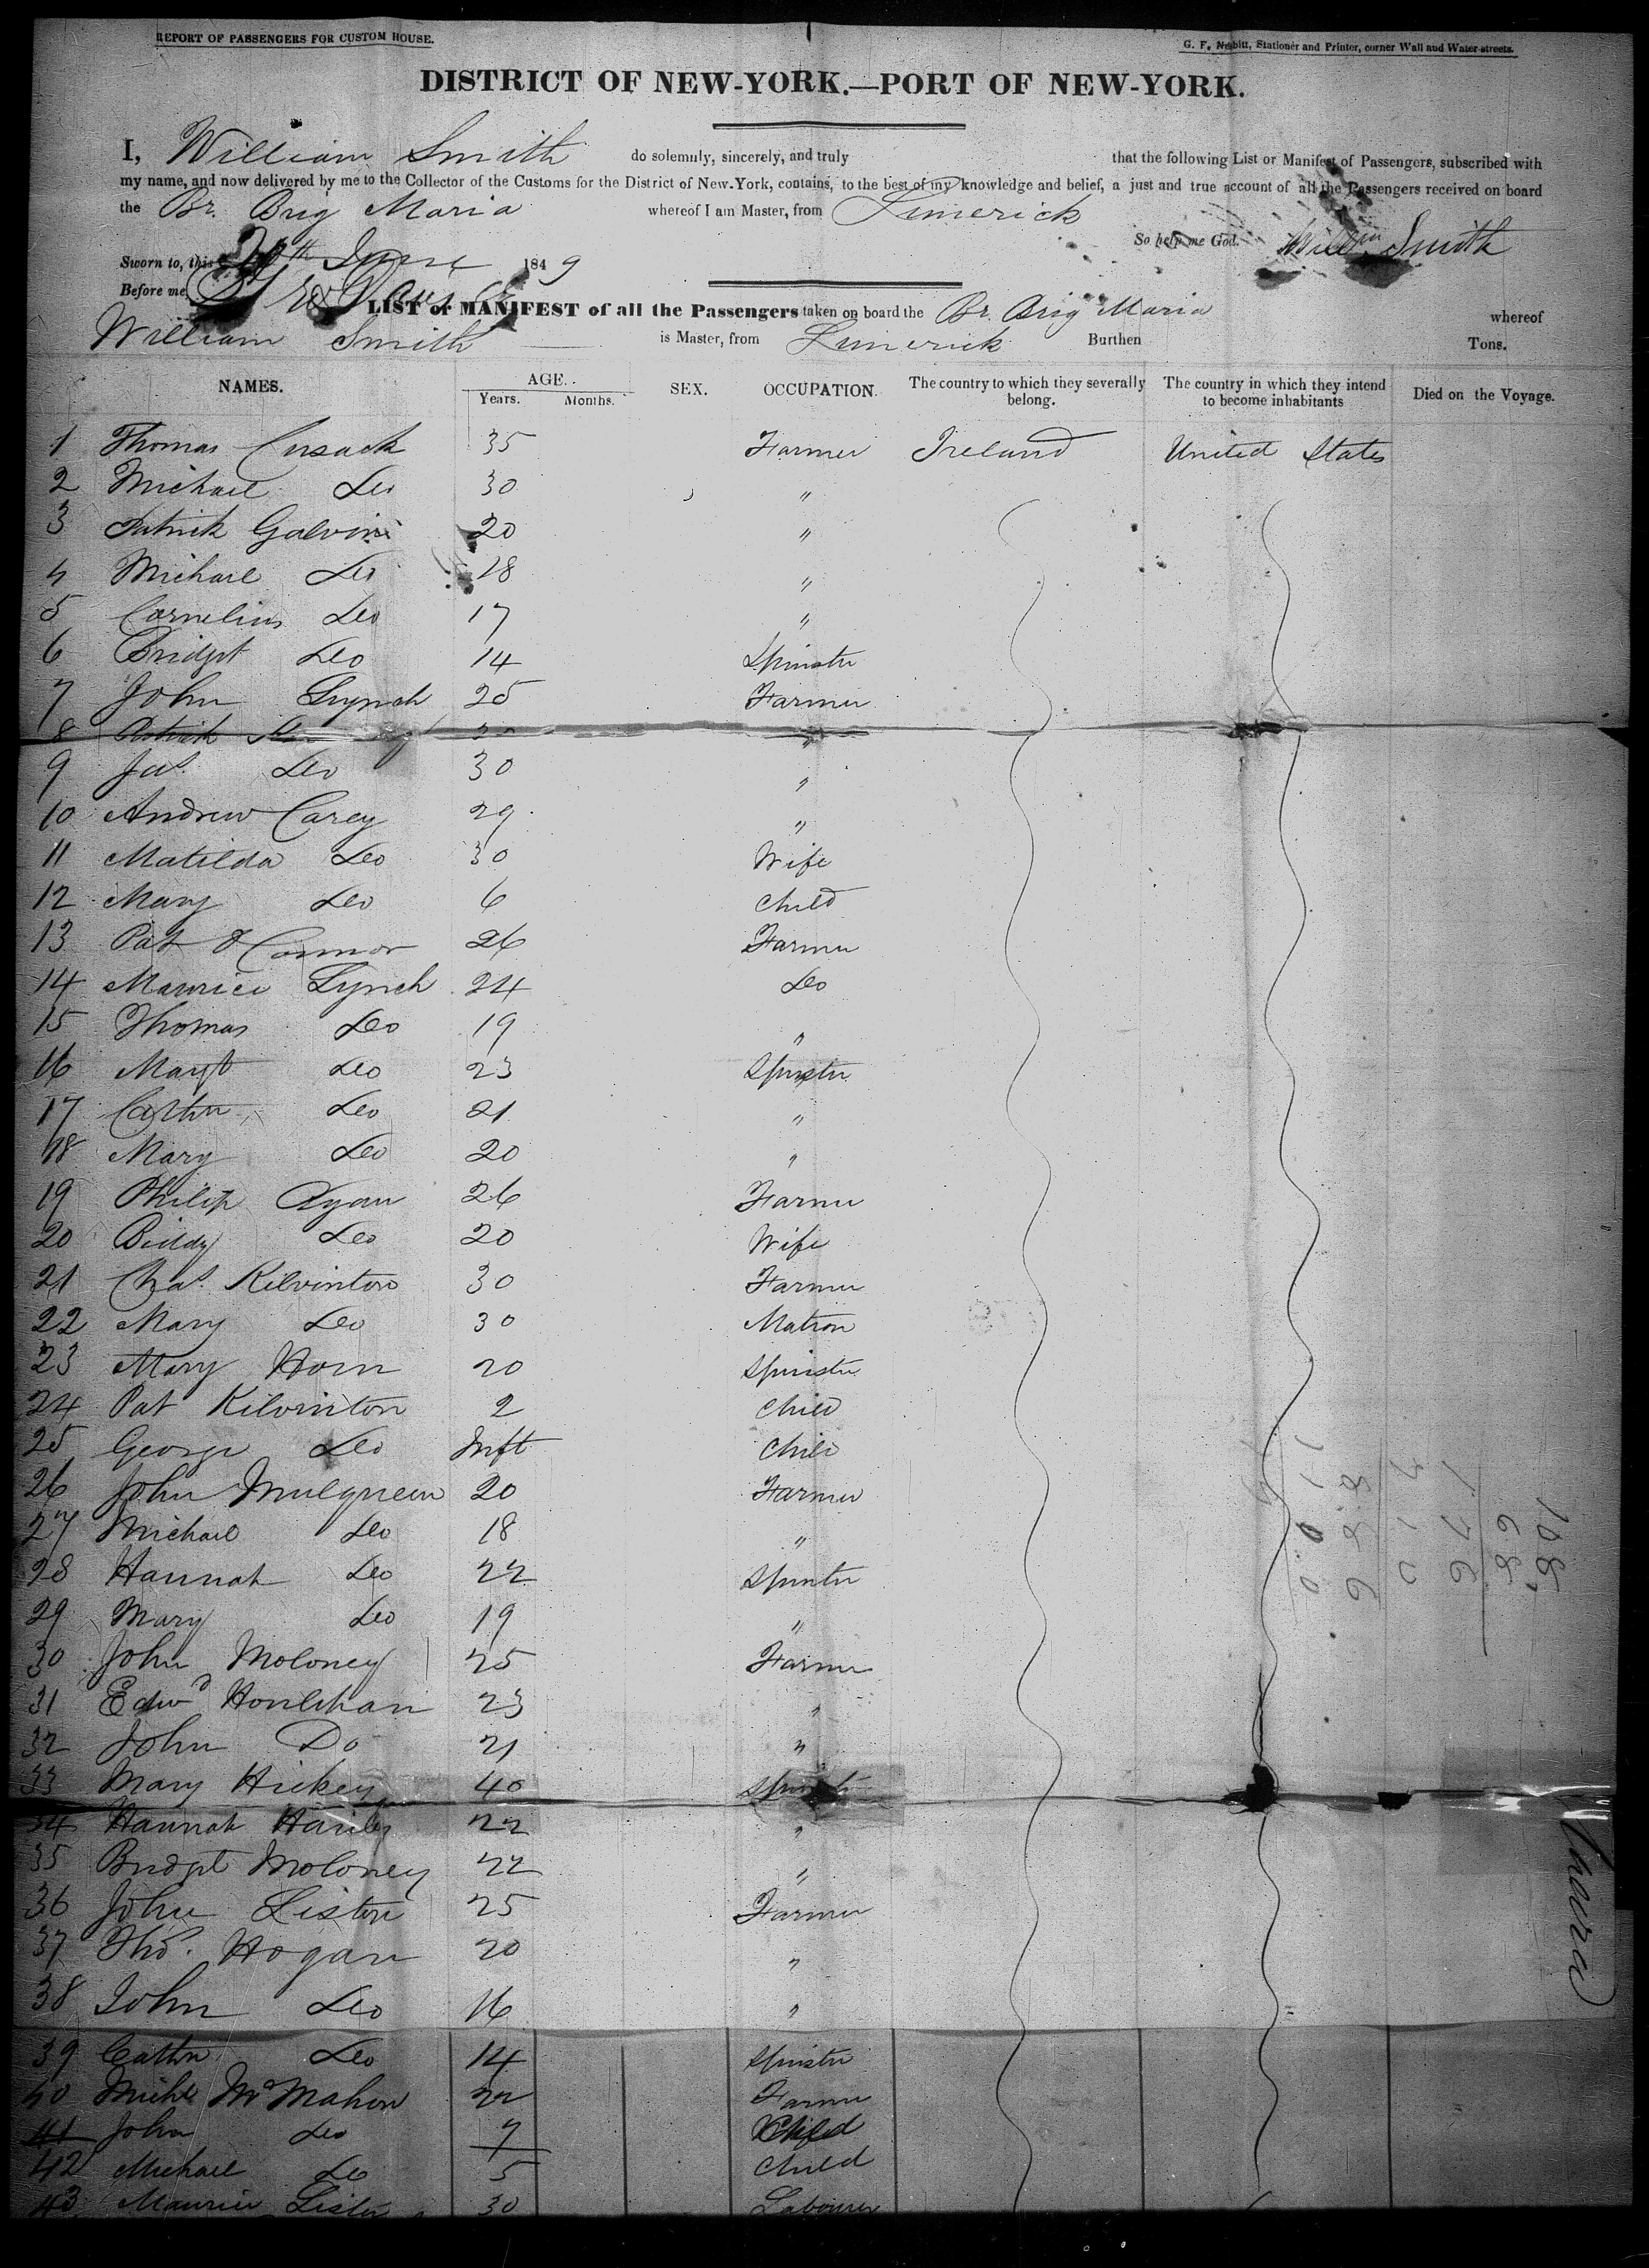 REPORT OF PASSENGERS FOR CUSTOM HOUSE.
G. F. Nesbitt, Stationer and Printer, corner Wall and Water-streets.
DISTRICT OF NEW-YORK.—PORT OF NEW-YORK.
I, William Smith do solemnly, sincerely, and truly that the following List or Manifest of Passengers, subscribed with
my name, and now delivered by me to the Collector of the Customs for the District of New-York, contains, to the best of my knowledge and belief, a just and true account of all the Passengers received on board
the Br. Brig Maria whereof I am Master, from Limerick
So help me God. William Smith
Sworn to, this June 1849
Before me,
LIST or MANIFEST of all the Passengers taken on board the Br. Brig Maria whereof
William Smith is Master, from Limerick Burthen Tons.
NAMES. AGE. SEX. OCCUPATION. The country to which they severally belong. The country in which they intend to become inhabitants Died on the Voyage.
Years. Months.
1 Thomas Cusack 35 Farmer Ireland United States
2 Michael Do 30 "
3 Patrick Galvin 20 "
4 Michael Do 18 "
5 Cornelius Do 17 "
6 Bridget Do 14 Spinster
7 John Lynch 25 Farmer
8 Patrick "
9 Jas. Do 30 "
10 Andrew Carey 29 "
11 Matilda Do 30 Wife
12 Mary Do 6 Child
13 Pat O'Connor 26 Farmer
14 Maurice Lynch 24 Do
15 Thomas Do 19 "
16 Margt Do 23 Spinster
17 Cathn Do 21 "
18 Mary Do 20 "
19 Philip Ryan 26 Farmer
20 Biddy Do 20 Wife
21 Chas. Kilvinton 30 Farmer
22 Mary Do 30 Matron
23 Mary Horn 20 Spinster
24 Pat Kilvinton 2 Child
25 George Do Inft Child
26 John Mulqueen 20 Farmer
27 Michael Do 18 "
28 Hannah Do 22 Spinster
29 Mary Do 19 "
30 John Moloney 25 Farmer
31 Edwd Houlihan 23 "
32 John Do 21 "
33 Mary Hickey 40 Spinster
34 Hannah 22 "
35 Bridget Moloney 22 "
36 John Liston 25 Farmer
37 Thos. Hogan 20 "
38 John Do 16 "
39 Cathn Do 14 Spinster
40 Michl McMahon 22 Farmer
41 John Do 7 Child
42 Michael Do 5 Child
43 Maurice Liston 30 Labourer